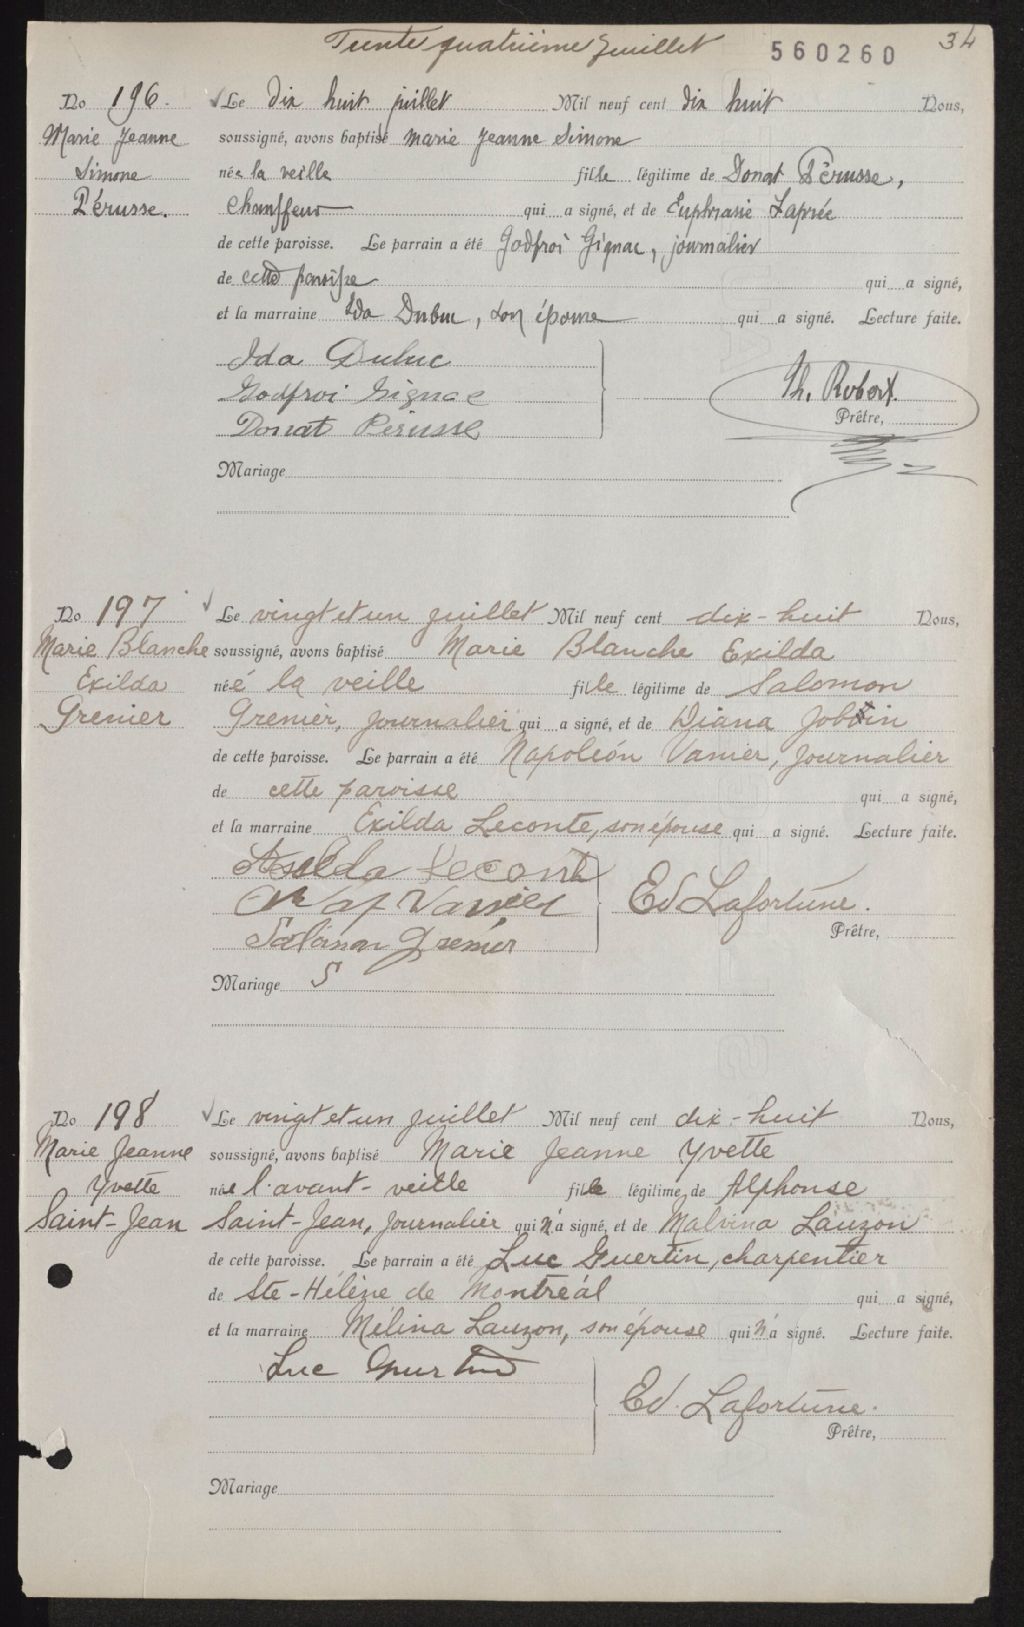 Trente quatrième Juillet 560260 34
No 196. Le dix huit juillet Mil neuf cent dix huit Nous,
Marie Jeanne soussigné, avons baptisé marie Jeanne Simone
Simone née la veille fille légitime de Donat Pérusse,
Pérusse. Chauffeur qui a signé, et de Euphrasie Laprée
de cette paroisse. Le parrain a été Godfroi Gignac, journalier
de cette paroisse qui a signé,
et la marraine Ida Dubuc, son épouse qui a signé. Lecture faite.
Ida Dubuc
Godfroi Gignac Th. Robert.
Donat Pérusse Prêtre,
Mariage
No 197 Le vingt et un juillet Mil neuf cent dix-huit Nous,
Marie Blanche soussigné, avons baptisé Marie Blanche Exilda
Exilda née la veille fille légitime de Salomon
Grenier Grenier, journalier qui a signé, et de Diana Jobin
de cette paroisse. Le parrain a été Napoléon Vanier, journalier
de cette paroisse qui a signé,
et la marraine Exilda Leconte, son épouse qui a signé. Lecture faite.
Leconte
Nap Vanier Ed Lafortune.
Salomon Grenier Prêtre,
Mariage S
No 198 Le vingt et un juillet Mil neuf cent dix-huit Nous,
Marie Jeanne soussigné, avons baptisé Marie Jeanne Yvette
Yvette née l'avant-veille fille légitime de Alphonse
Saint-Jean Saint-Jean, journalier qui n'a signé, et de Malvina Lauzon
de cette paroisse. Le parrain a été Luc Guertin, charpentier
de Ste-Hélène de Montréal qui a signé,
et la marraine Mélina Lauzon, son épouse qui n'a signé. Lecture faite.
Luc Guertin
Ed. Lafortune.
Prêtre,
Mariage